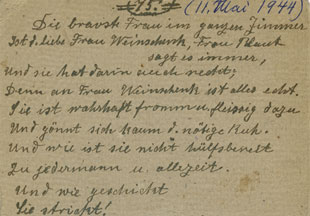 15. (11. Mai 1944)
Die bravste Frau im ganzen Zimmer
Ist d. liebe Frau Weinschenk, Frau
sagt es immer,
Und sie hat darin auch recht;
Denn an Frau Weinschenk ist alles echt.
Sie ist wahrhaft fromm u. fleissig dazu
Und gönnt sich kaum d. nötige Ruh.
Und wie ist sie nicht hülfsbereit
Zu jedermann u. allezeit.
Und wie geschickt
Sie strickt!